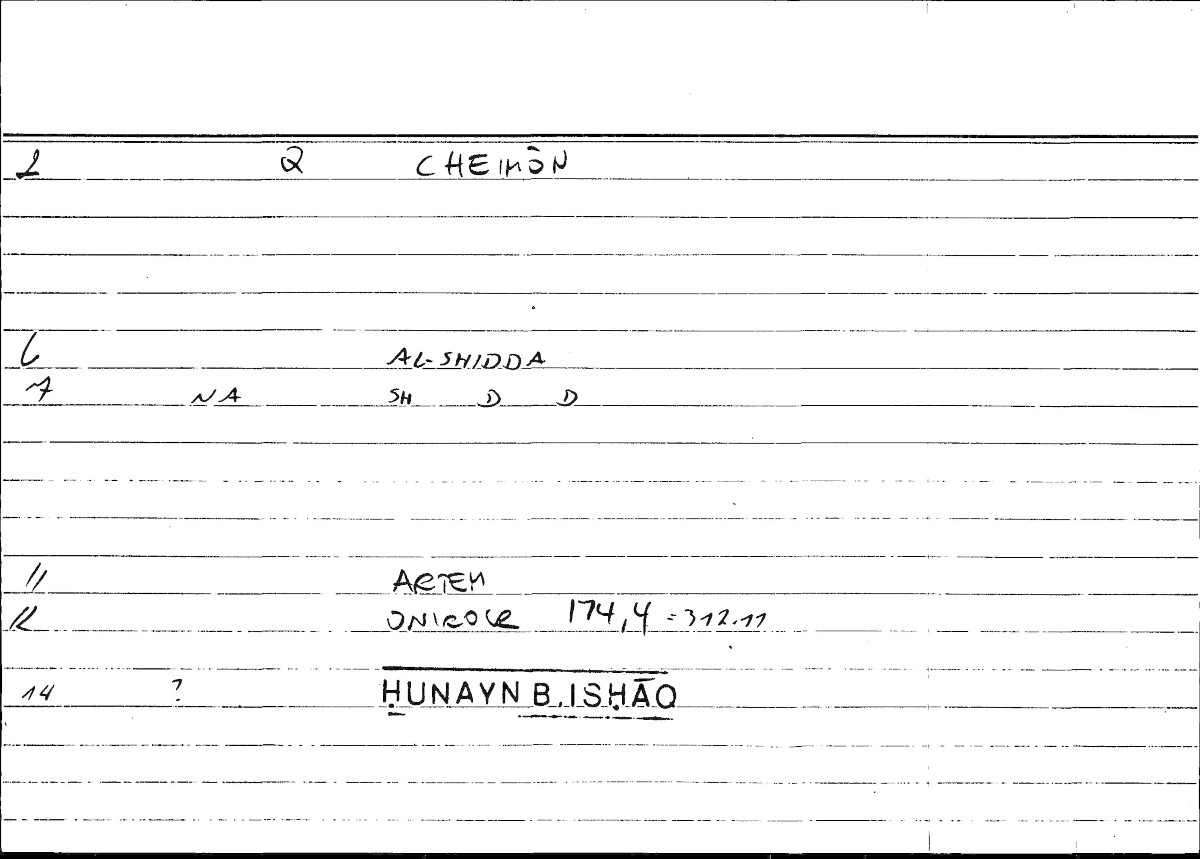 2 Q CHEIMŌN
6 AL-SHIDDA
7 NA SH D D
11 ARTEM
12 ONIROCR 174,4 = 312.11
14 ? ḤUNAYN B. ISḤĀQ